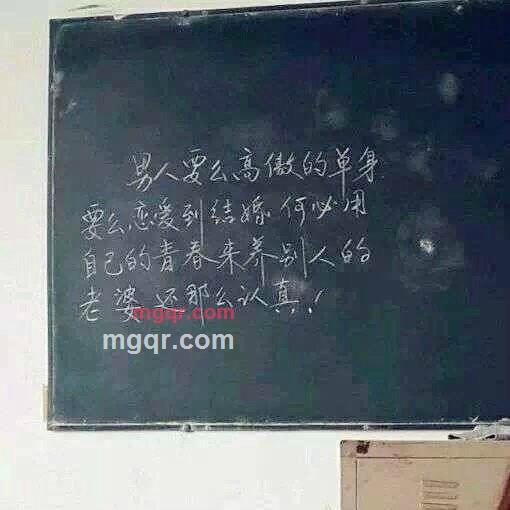 男人要么高傲的单身
要么恋爱到结婚何必用
自己的青春来养别人的
老婆还那么认真!
mgqr.com
mgqr.com